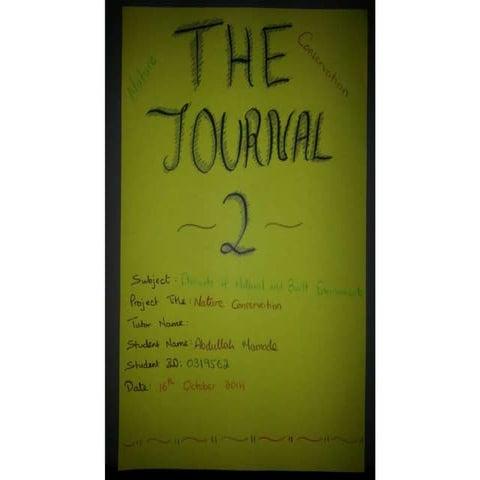 Nature
THE
Conservation
JOURNAL
~ 2 ~
Subject: Elements of Natural and Built Environment
Project Title: Nature Conservation
Tutor Name:
Student Name: Abdullah Mamode
Student ID: 0319562
Date: 16th October 2014